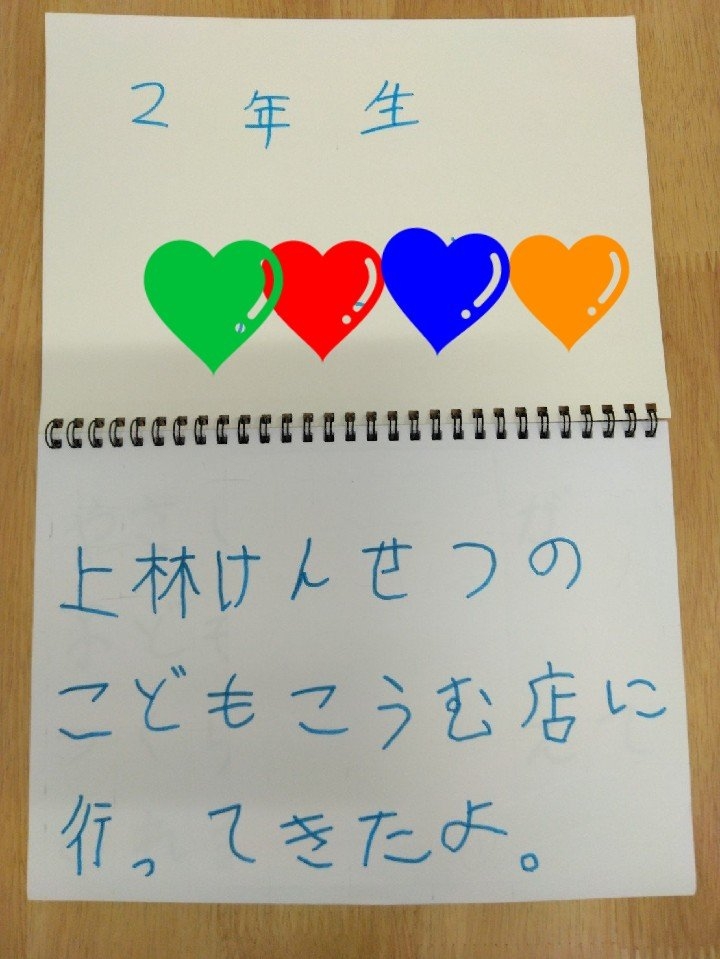 2年生
上林けんせつの
こどもこうむ店に
行ってきたよ。